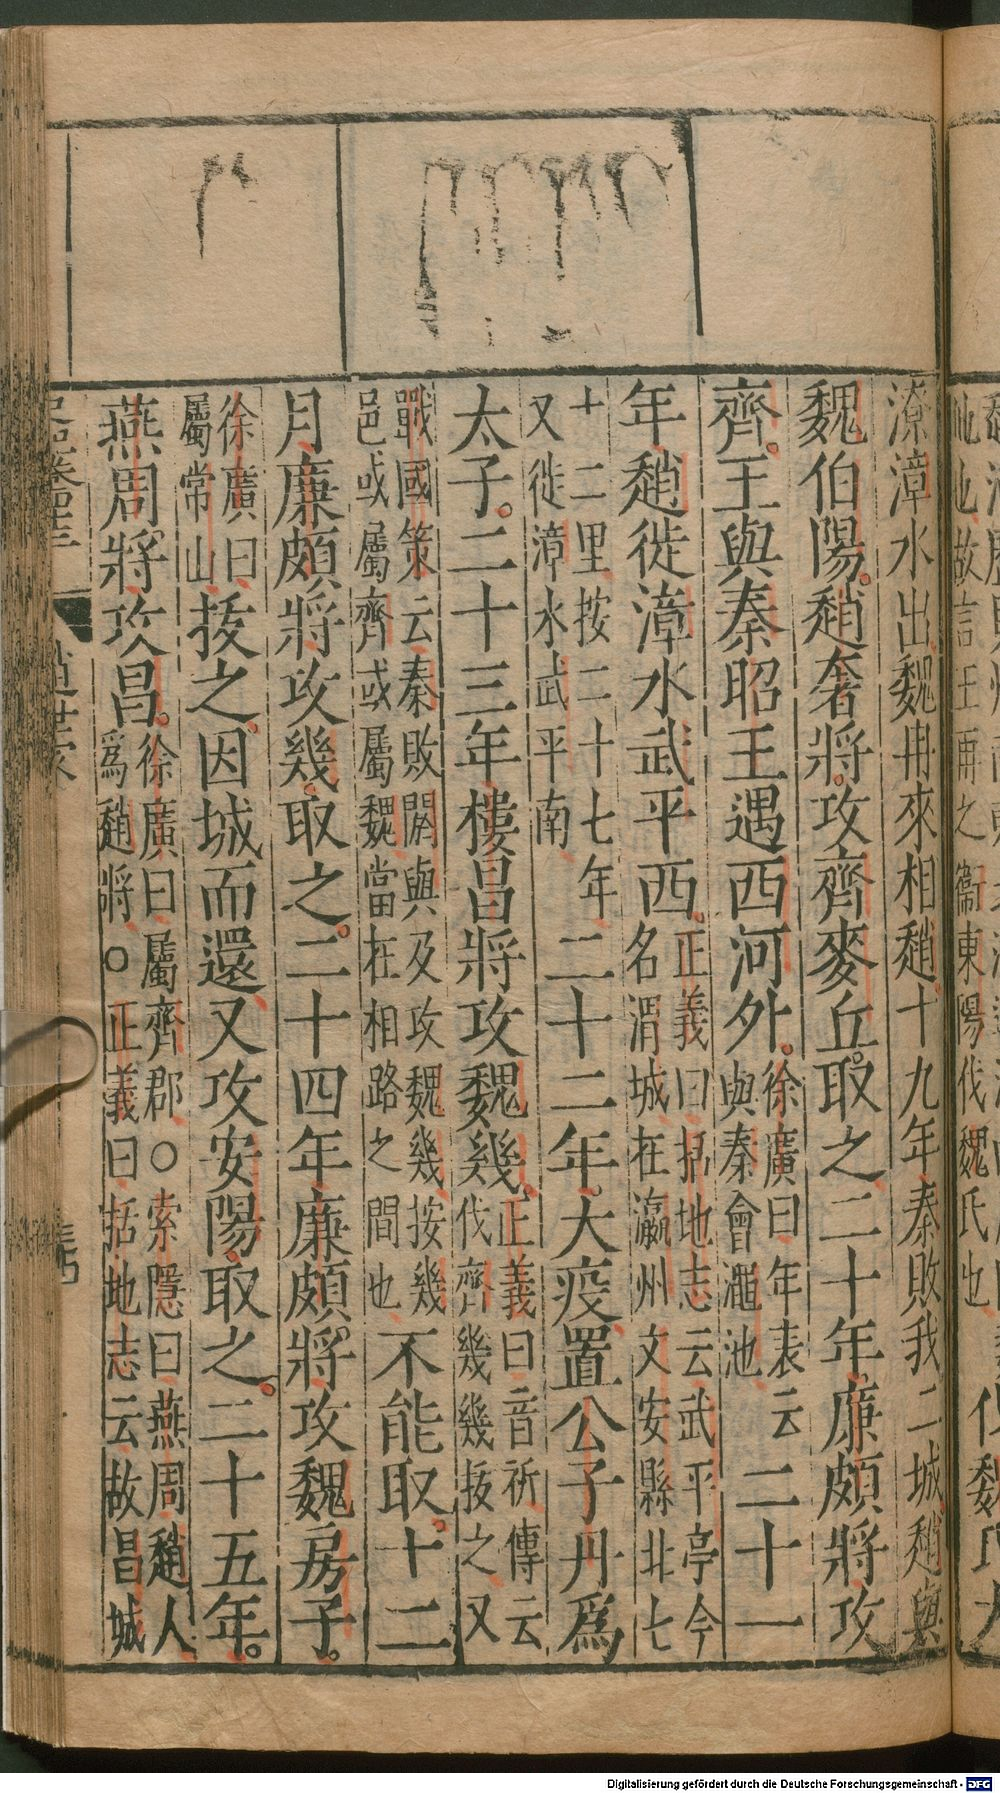 潦漳水出魏冉來相趙十九年秦敗我二城趙與
魏伯陽趙奢將攻齊麥丘取之二十年廉頗將攻
齊王與秦昭王遇西河外徐廣曰年表云與秦會澠池二十一
年趙徙漳水武平西正義曰括地志云武平亭今名渭城在瀛州文安縣北七
十二里按二十七年又徙漳水武平南二十二年大疫置公子丹爲
太子二十三年樓昌將攻魏幾正義曰音祈傳云伐齊幾幾拔之又
戰國策云秦敗閼與及攻魏幾按幾邑或屬齊或屬魏當在相路之間也不能取十二
月廉頗將攻幾取之二十四年廉頗將攻魏房子
徐廣曰屬常山拔之因城而還又攻安陽取之二十五年
燕周將攻昌徐廣曰屬齊郡○索隱曰燕周趙人爲趙將○正義曰括地志云故昌城
Digitalisierung gefördert durch die Deutsche Forschungsgemeinschaft - DFG